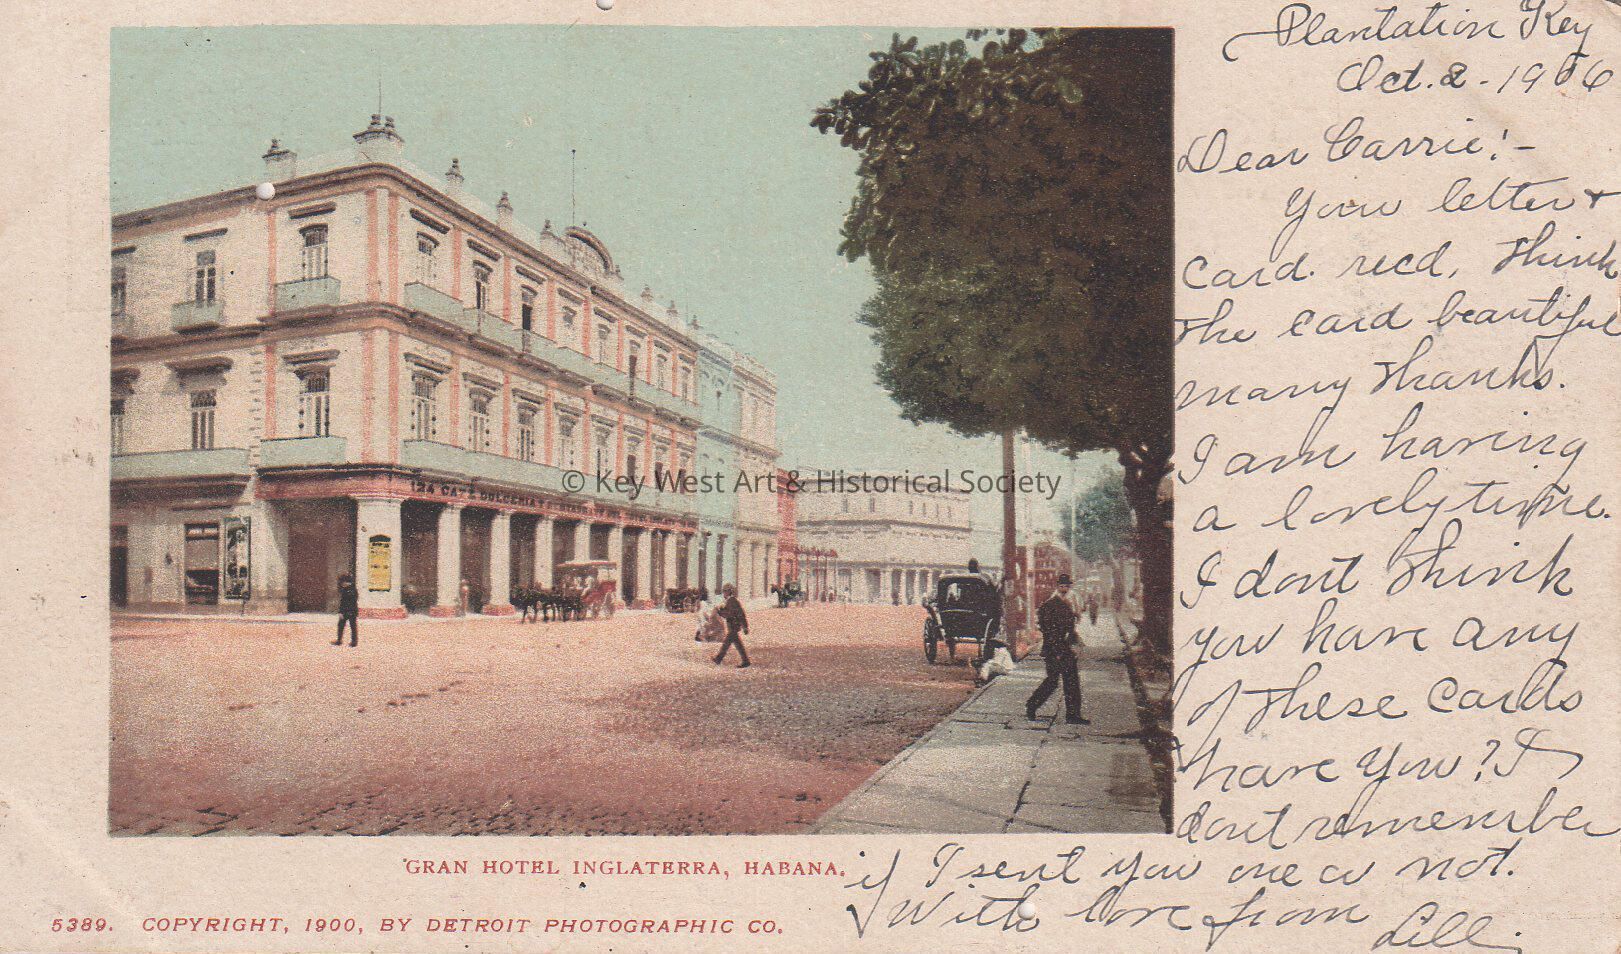 Plantation Key
Oct. 2 - 1906
Dear Carrie! -
Your letter &
card. recd, Think
the card beautiful
many thanks.
I am having
a lovely time.
I dont think
you have any
of these cards
have you? I
dont remember
if I sent you one or not.
With love from
Lill
124 CAFE DULCERIA Y RESTAURANT
© Key West Art & Historical Society
GRAN HOTEL INGLATERRA, HABANA.
5389. COPYRIGHT, 1900, BY DETROIT PHOTOGRAPHIC CO.